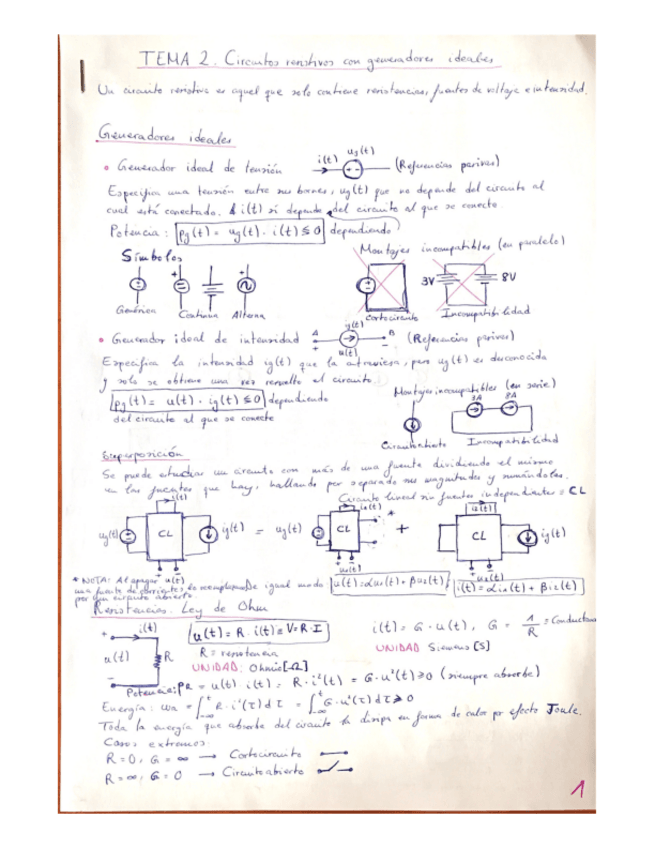 TEMA 2. Circuitos resistivos con generadores ideales
Un circuito resistivo es aquel que solo contiene resistencias, fuentes de voltaje e intensidad.
Generadores ideales
• Generador ideal de tensión i(t) ug(t) (Referencias pasivas)
Especifica una tensión entre sus bornes, ug(t) que no depende del circuito al
cual está conectado. i(t) sí depende del circuito al que se conecte
Potencia: pg(t) = ug(t) · i(t) ≶ 0 dependiendo
Símbolos
Montajes incompatibles (en paralelo)
3V 8V
Genérico Continua Alterna
Cortocircuito Incompatibilidad
• Generador ideal de intensidad A ig(t) B u(t) (Referencias pasivas)
Especifica la intensidad ig(t) que la atraviesa, pero ug(t) es desconocida
y solo se obtiene una vez resuelto el circuito.
pg(t) = u(t) · ig(t) ≶ 0 dependiendo
del circuito al que se conecte
Montajes incompatibles (en serie)
3A 8A
Circuito abierto Incompatibilidad
Superposición
Se puede estudiar un circuito con más de una fuente dividiendo el mismo
en las fuentes que hay, hallando por separado sus magnitudes y sumándolas.
Circuito lineal sin fuentes independientes = CL
i(t) i1(t) * i2(t)
ug(t) CL ig(t) = ug(t) CL + CL ig(t)
u(t) u1(t) u2(t)
* NOTA: Al apagar
una fuente de corriente, la reemplazamos
por un circuito abierto.
De igual modo u(t) = αu1(t) + βu2(t) i(t) = αi1(t) + βi2(t)
Resistencias. Ley de Ohm
i(t)
+ u(t) - R
u(t) = R · i(t) ≡ V = R · I
i(t) = G · u(t), G = 1/R =
R = resistencia
UNIDAD: Ohmis [Ω]
UNIDAD Siemens [S]
Potencia: PR = u(t) · i(t) = R · i²(t) = G · u²(t) ≥ 0 (siempre absorbe)
Energía: wa = ∫ R · i²(τ) dτ = ∫ G · u²(τ) dτ ≥ 0
Toda la energía que absorbe del circuito la disipa en forma de calor por efecto Joule.
Casos extremos:
R = 0, G = ∞ → Cortocircuito
R = ∞, G = 0 → Circuito abierto
1